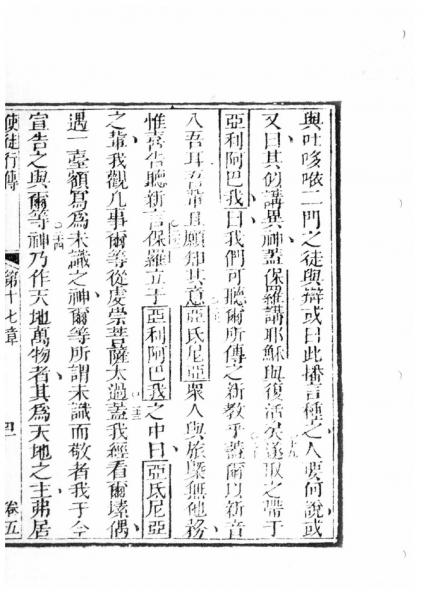 與吐哆咻一門之徒與辯或曰此播言種之人要何說或
又曰其似講異神蓋保羅講耶穌與復活矣遂取之帶于
亞利阿巴我曰我們可聽爾所傳之新教乎蓋爾以新音
入吾耳吾輩且願知其意亞氏尼亞眾人與旅無他務
惟喜告聽新言保羅立于亞利阿巴我之中曰亞氏尼亞
之輩我觀凡事爾等從虔崇菩薩太過蓋我經看爾壇偶
遇一臺額寫為未識之神爾等所謂未識而敬者我于今
宣告之與爾等神乃作天地萬物者其為天地之主弗居
使徒行傳 第十七章 卷五